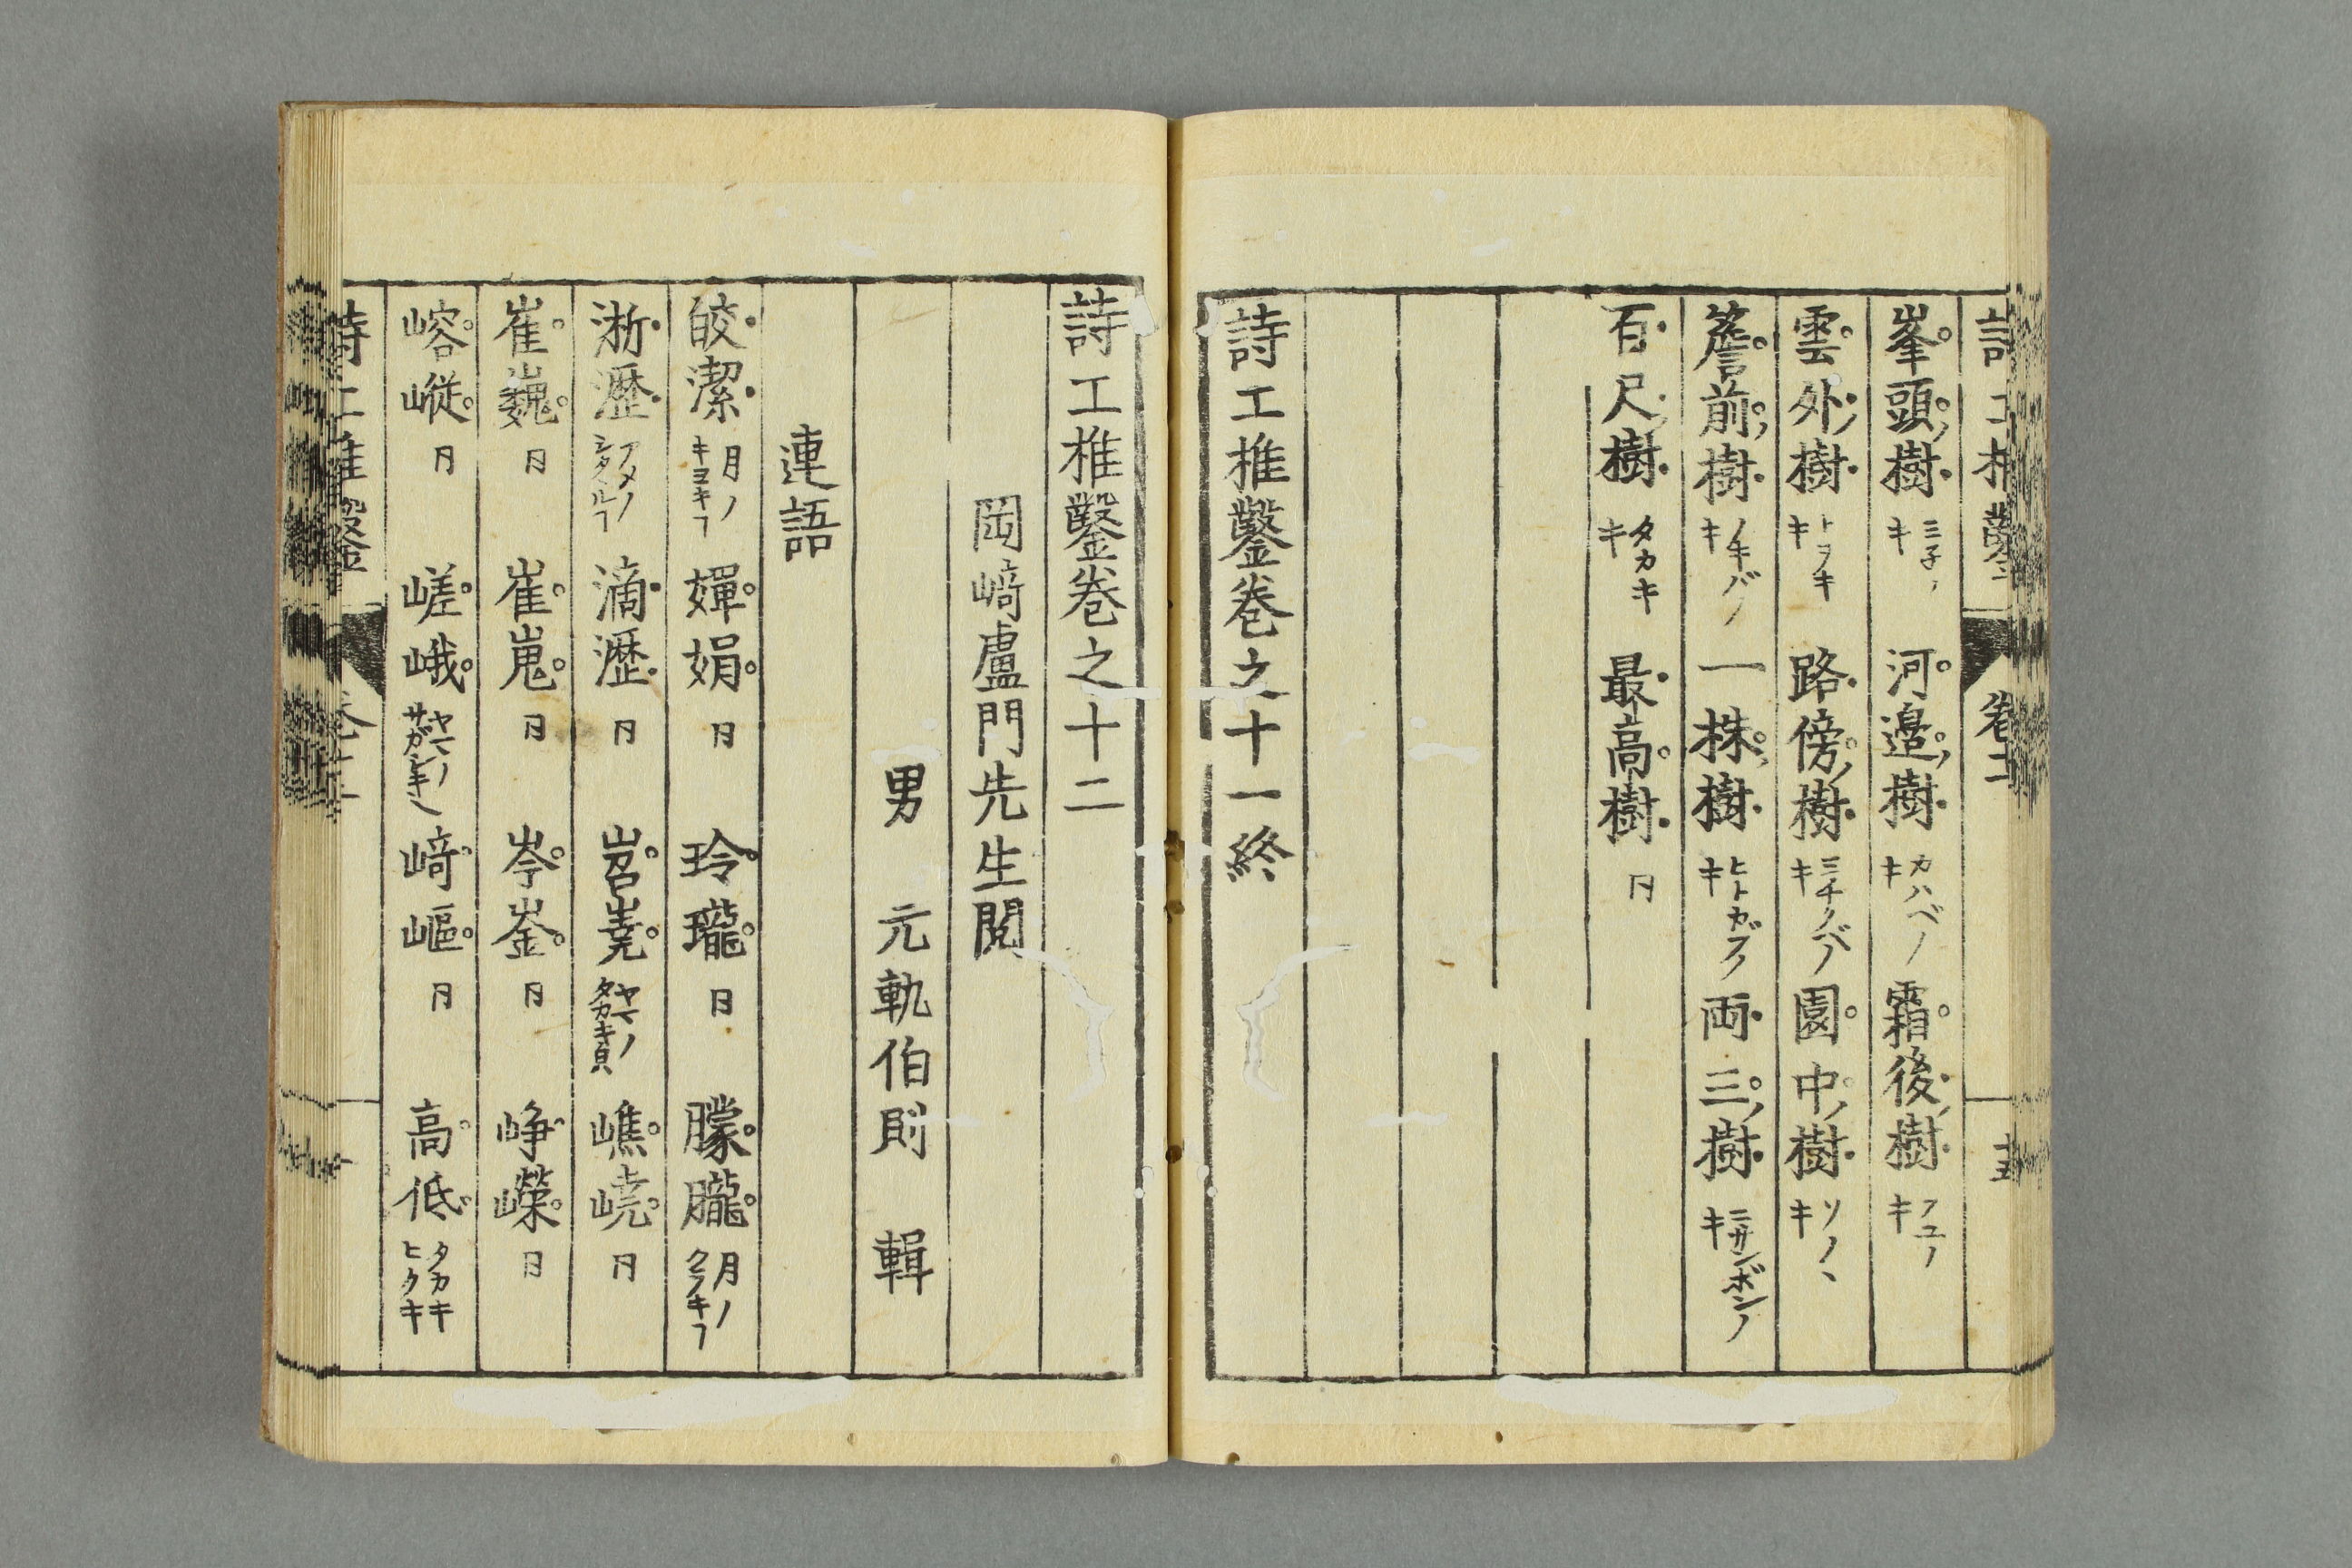 峯頭樹 ミ子ノキ 河邉樹 カハベノキ 霜後樹 フユノキ
雲外樹 トヲキキ 路傍樹 ミチノバノキ 園中樹 ソノヽキ
簷前樹 ノキバノキ 一株樹 ヒトカブノキ 両三樹 ニサンボンノキ
百尺樹 タカキキ 最高樹 仝
詩工推鑿巻之十一終
詩工推鑿巻之十二
岡﨑盧門先生閲
男 元軌伯則 輯
連語
皎潔 月ノキヨキヿ 嬋娟 仝 玲瓏 仝 朦朧 月ノクラキヿ
淅瀝 アメノシタヽルヿ 滴瀝 仝 岧嶤 ヤマノタカキ皃 嶕嶢 仝
崔巍 仝 崔嵬 仝 岑崟 仝 崢嶸 仝
嵱嵷 仝 嵯峨 﨑嶇 仝 高低 タカキヒクキ